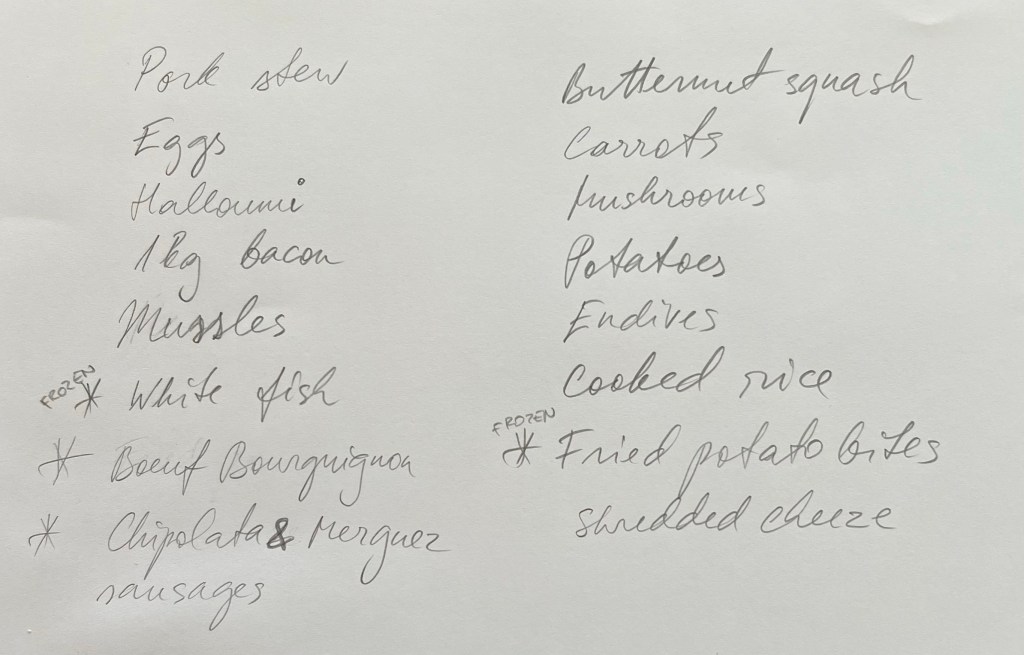 Pork stew
Eggs
Halloumi
1kg bacon
Mussles
FROZEN
* White fish
* Boeuf Bourguignon
* Chipolata & Merguez
sausages
Butternut squash
Carrots
Mushrooms
Potatoes
Endives
Cooked rice
FROZEN
* Fried potato bites
shredded cheeze